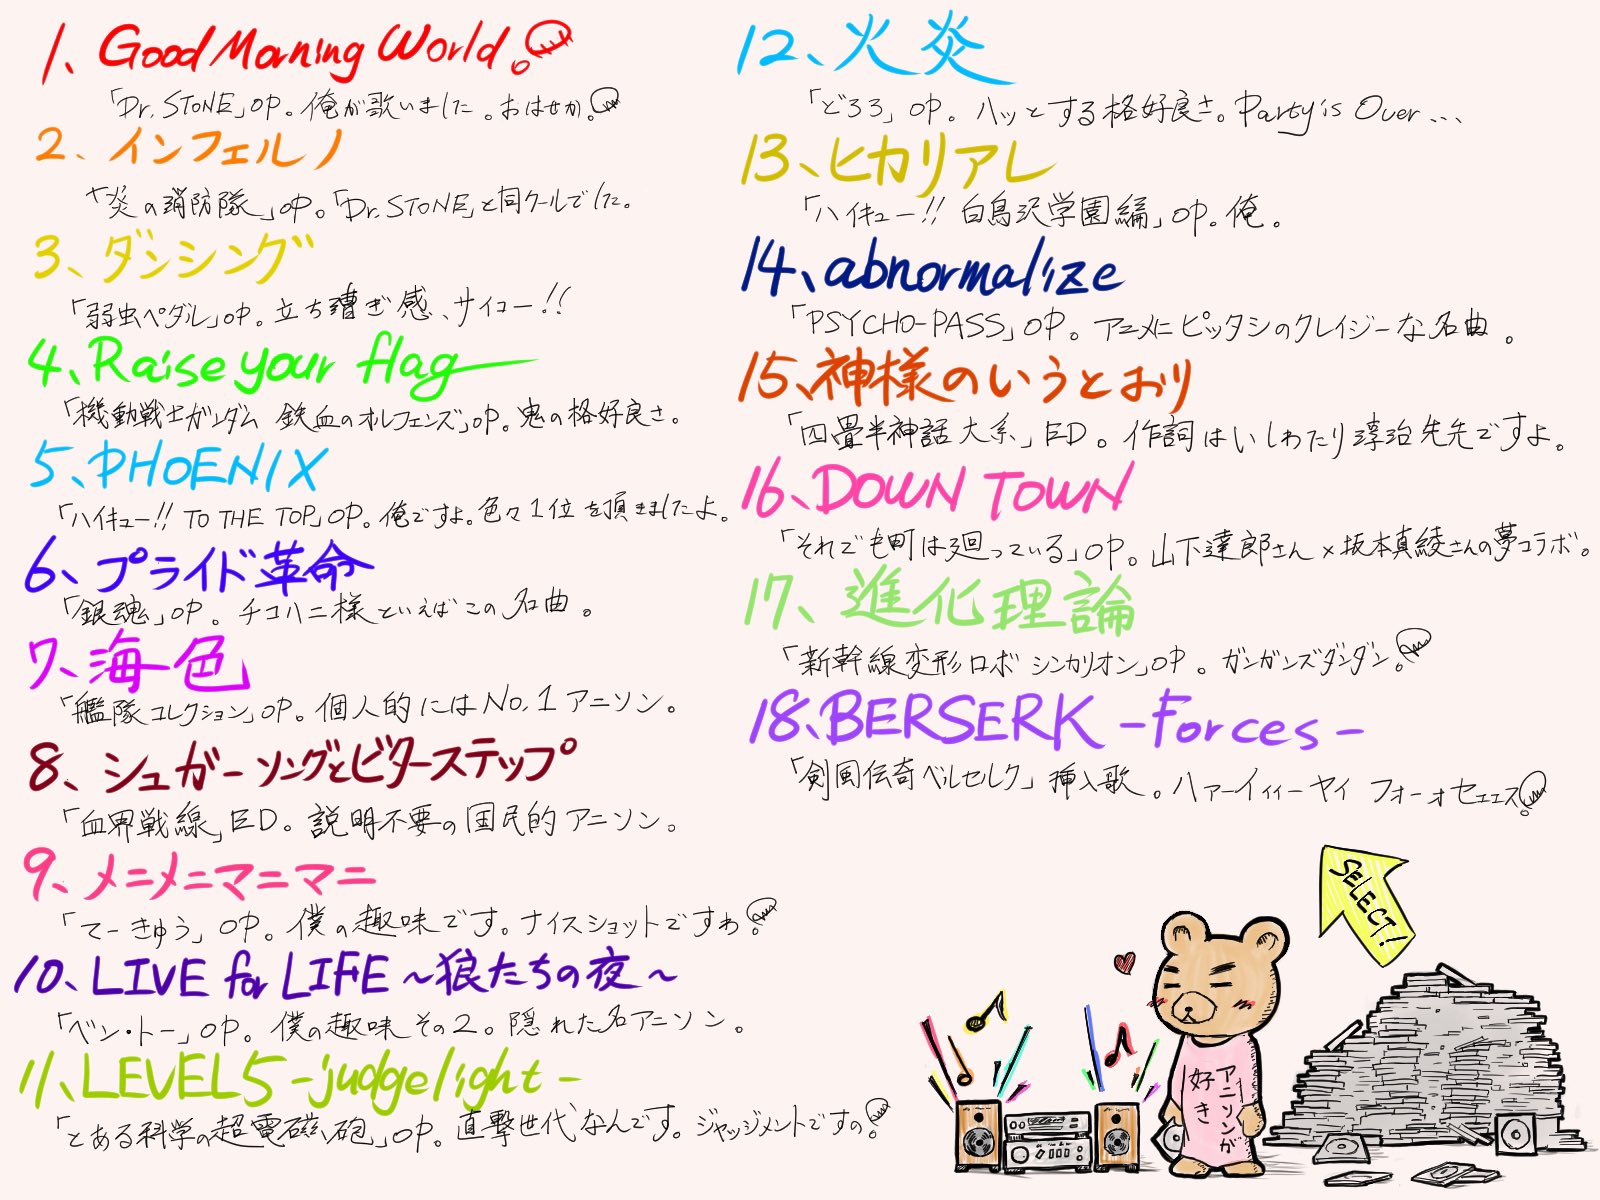 1、Good Morning World!
「Dr. STONE」OP。俺が歌いました。おはせか!
2、インフェルノ
「炎の消防隊」OP。「Dr. STONE」と同クールでした。
3、ダンシング
「弱虫ペダル」OP。立ち漕ぎ感、サイコー!!
4、Raise your flag
「機動戦士ガンダム 鉄血のオルフェンズ」OP。鬼の格好良さ。
5、PHOENIX
「ハイキュー!! TO THE TOP」OP。俺ですよ。色々1位を頂きましたよ。
6、プライド革命
「銀魂」OP。チコハニ様といえばこの名曲。
7、海色
「艦隊コレクション」OP。個人的にはNo.1アニソン。
8、シュガーソングとビターステップ
「血界戦線」ED。説明不要の国民的アニソン。
9、メニメニマニマニ
「てーきゅう」OP。僕の趣味です。ナイスショットですわ!
10、LIVE for LIFE ～狼たちの夜～
「ベン・トー」OP。僕の趣味その2。隠れた名アニソン。
11、LEVEL5 -judgelight-
「とある科学の超電磁砲」OP。直撃世代なんです。ジャッジメントですの!
12、火炎
「どろろ」OP。ハッとする格好良さ。Party is Over...
13、ヒカリアレ
「ハイキュー!! 白鳥沢学園編」OP。俺。
14、abnormalize
「PSYCHO-PASS」OP。アニメにピッタシのクレイジーな名曲。
15、神様のいうとおり
「四畳半神話大系」ED。作詞はいしわたり淳治先先ですよ。
16、DOWN TOWN
「それでも町は廻っている」OP。山下達郎さん×坂本真綾さんの夢コラボ。
17、進化理論
「新幹線変形ロボ シンカリオン」OP。ガンガンズダンダン!
18、BERSERK -Forces-
「剣風伝奇ベルセルク」挿入歌。ハァーイィィーヤイ フォーォセェェス!
SELECT!
アニソンが
好き